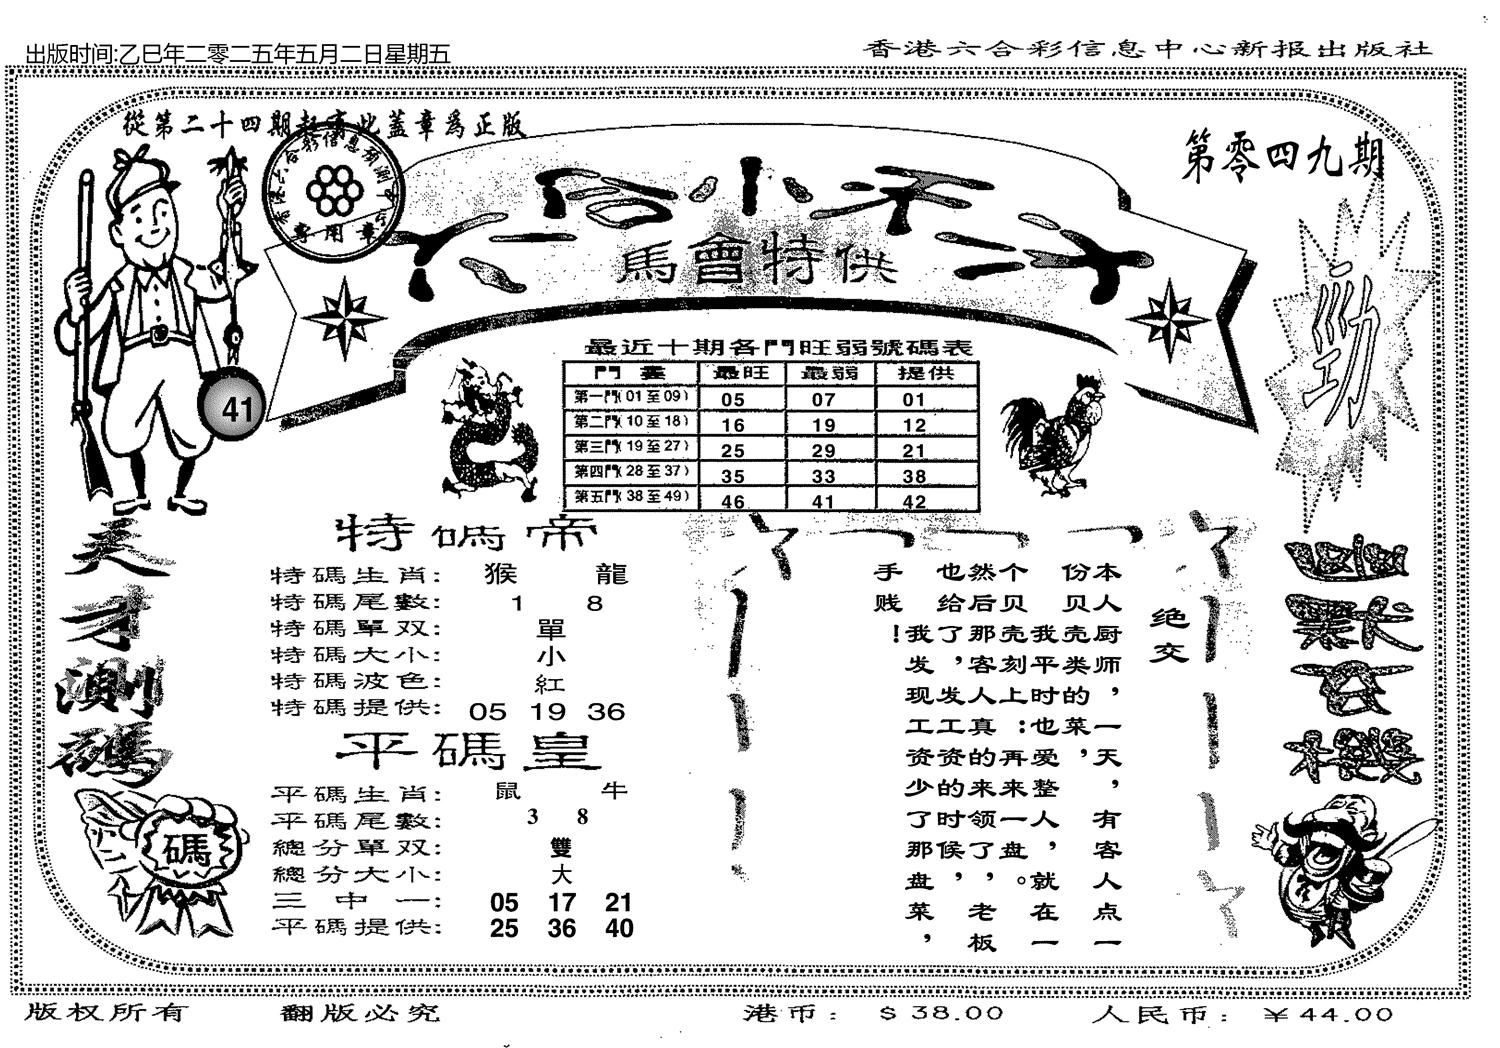 出版时间:乙巳年二零二五年五月二日星期五
香港六合彩信息中心新报出版社
從第二十四期起有此蓋章爲正版
香港六合彩信息预测中心
專用章
第零四九期
馬會特供
勁
41
最近十期各門旺弱號碼表
門 最旺 最弱 提供
第一門(01至09) 05 07 01
第二門(10至18) 16 19 12
第三門(19至27) 25 29 21
第四門(28至37) 35 33 38
第五門(38至49) 46 41 42
天才測碼
碼
特碼帝
特碼生肖: 猴 龍
特碼尾數: 1 8
特碼單双: 單
特碼大小: 小
特碼波色: 紅
特碼提供: 05 19 36
平碼皇
平碼生肖: 鼠 牛
平碼尾數: 3 8
總分單双: 雙
總分大小: 大
三中一: 05 17 21
平碼提供: 25 36 40
绝交
本人厨师，一天，有客人点一
份贝壳类的菜，
我平时也爱整人，就在一
个贝壳刻上：再来一盘。
然后那客人真的来领了，老板
也给了，发工资的时候，
我发现工资少了那盘菜，
手贱！
版权所有
翻版必究
港币: $38.00
人民币: ¥44.00